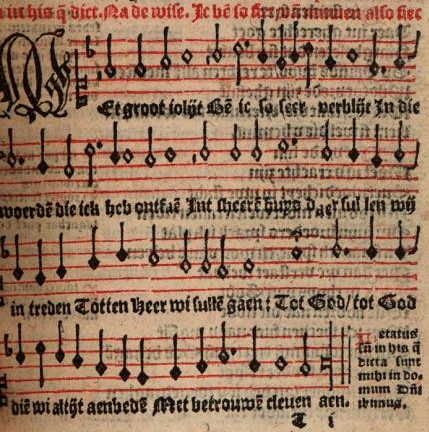 in his q̄ dict. Na de wise. Ic bē so
also siec
Et groot iolijt Bē ic so seer verblijt In die
woordē die ick heb ontfaē Int sheerē huys daer sul len wij
in treden Totten Heer wi sullē gaen: Tot God/ tot God
diē wi altijt aenbedē Met betrouwē cleuen aen.
etatus
sū in his q̄
dicta sunt
mihi in do-
mum Dñi
ibimus.
T i